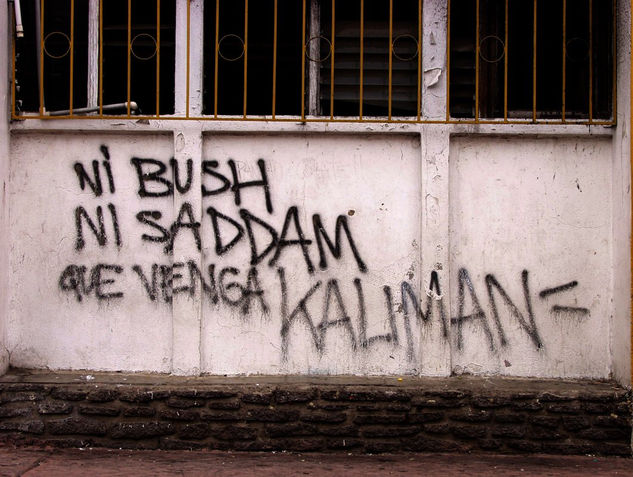 Ni BUSH
Ni SADDAM
QUE VENGA KALIMAN =